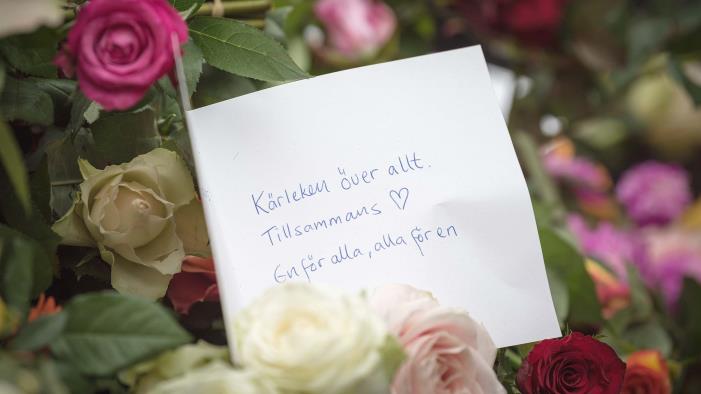 Kärleken över allt.
Tillsammans ♡
En för alla, alla för en